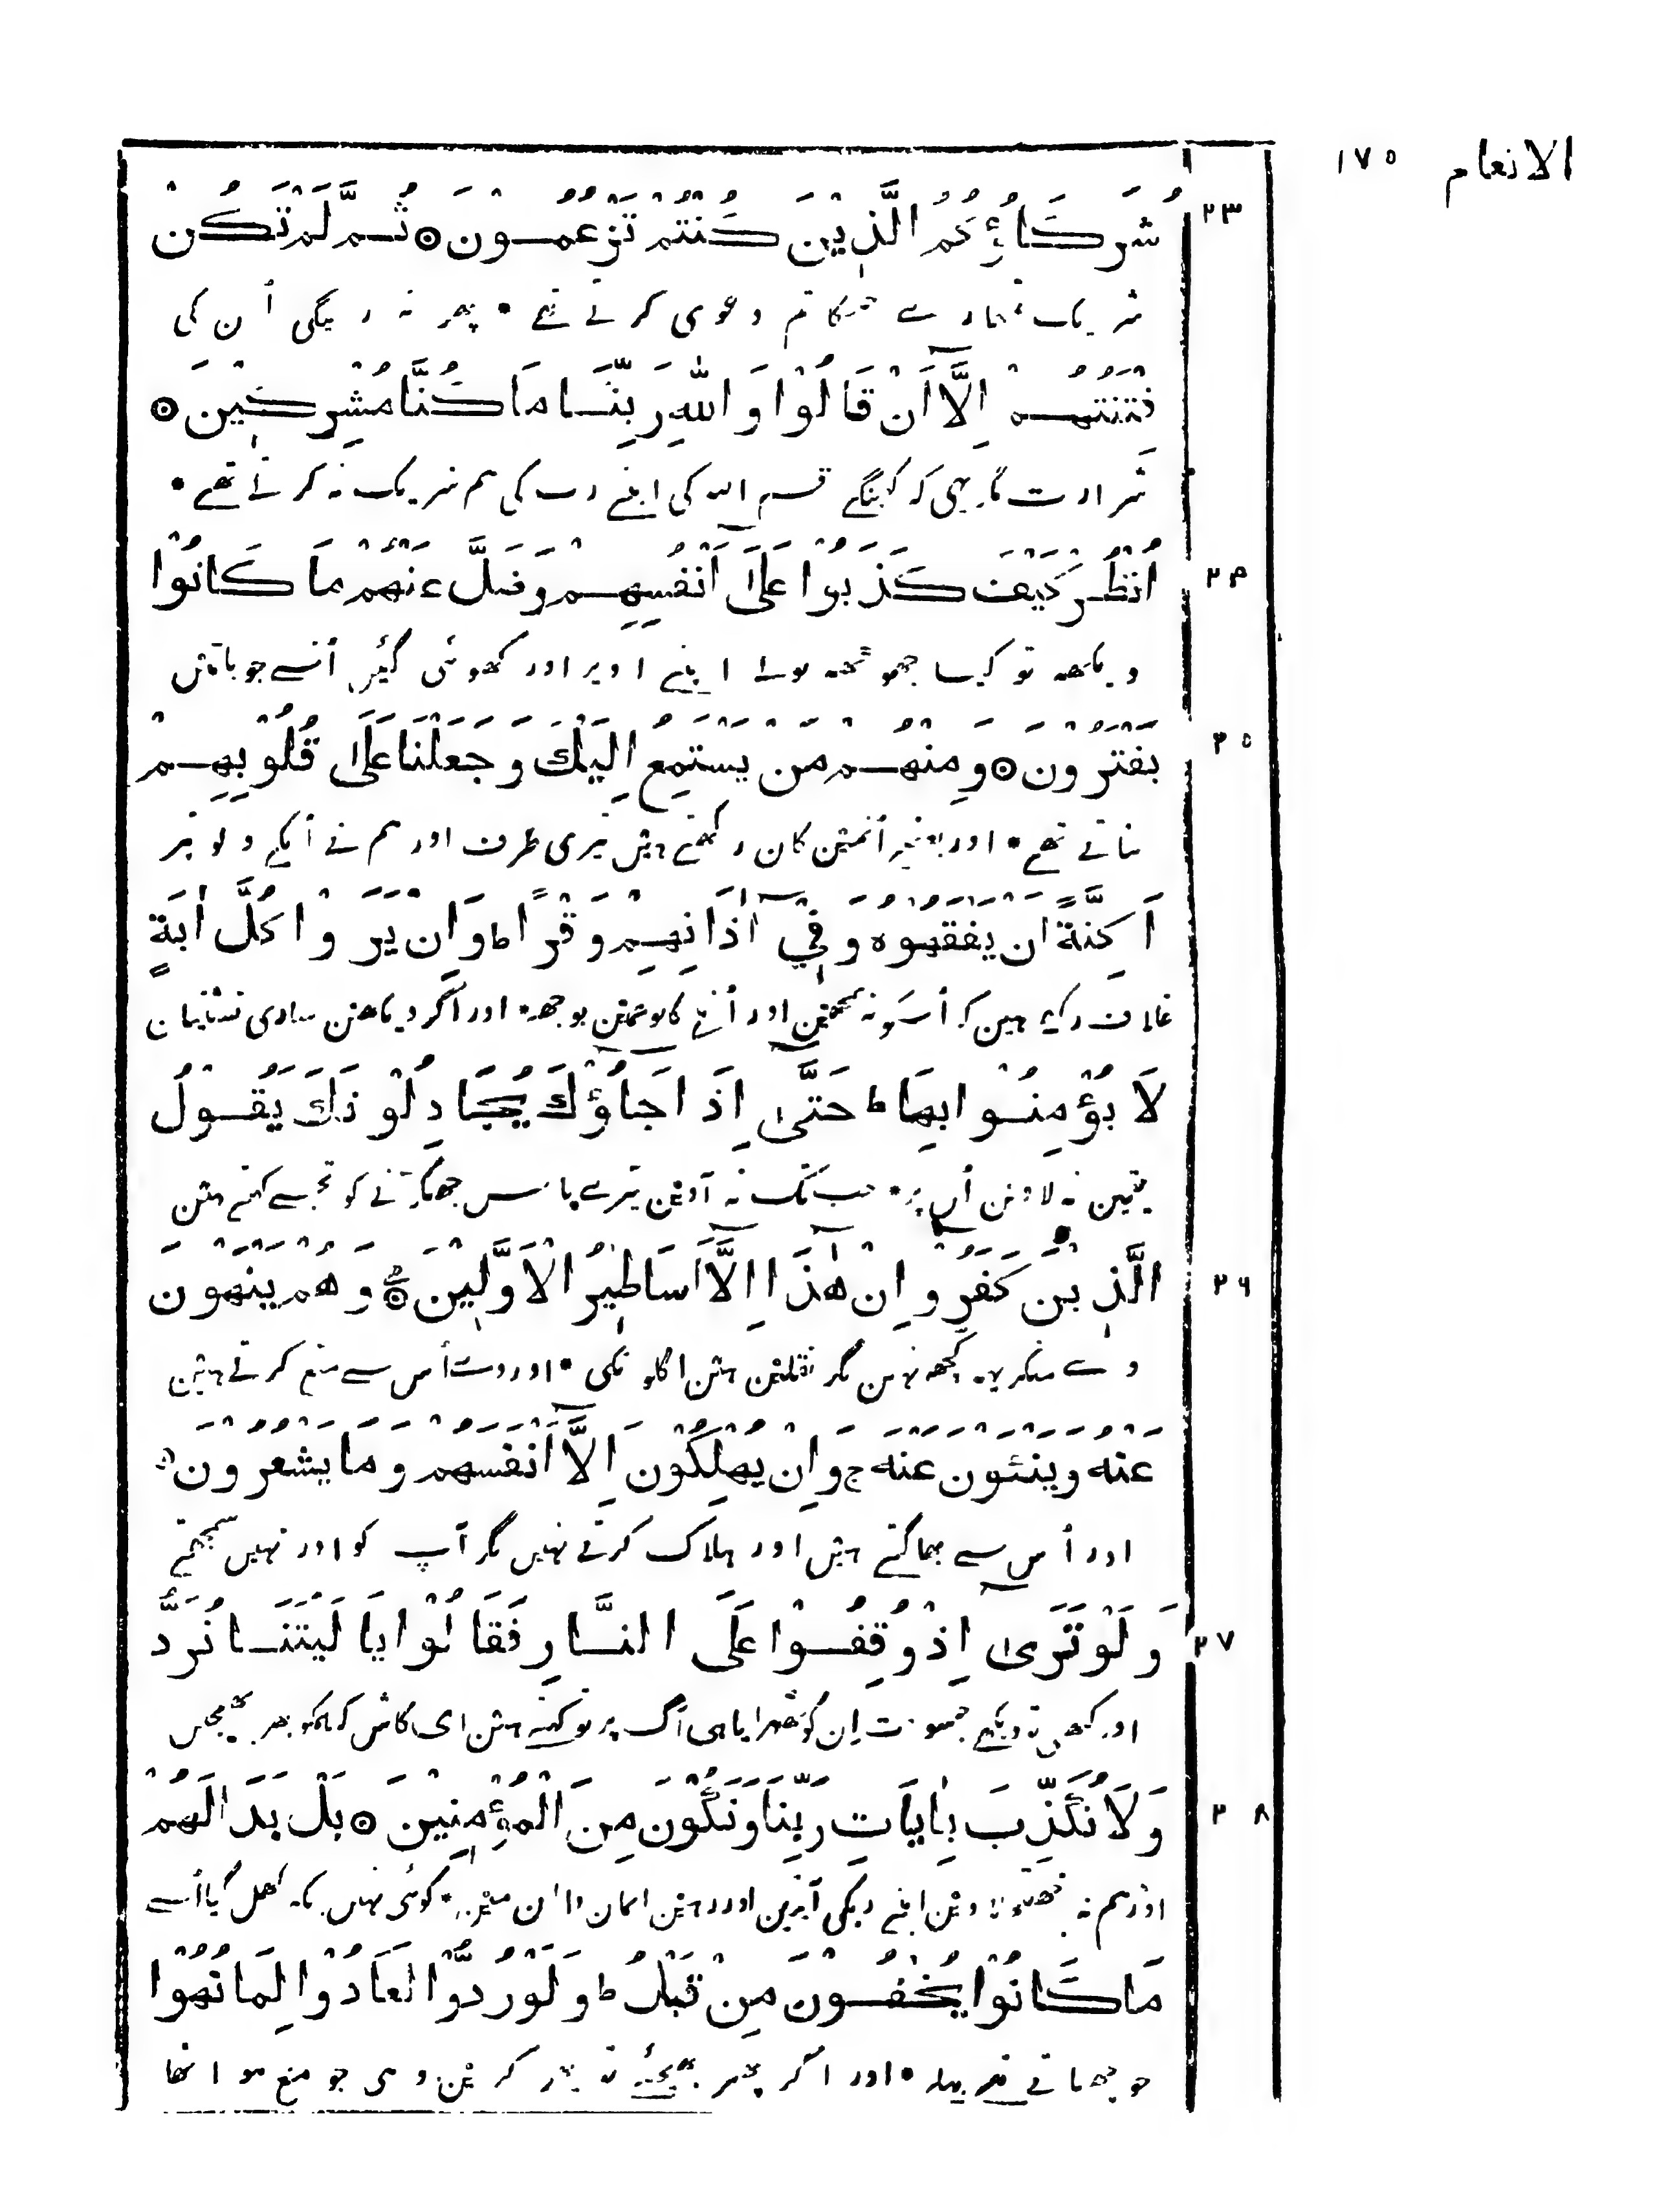 الانعام ١٧٥
٢٣
شُرَكَاؤُكُمُ الَّذِيْنَ كُنْتُمْ تَزْعُمُوْنَ ۞ ثُمَّ لَمْ تَكُنْ
شریک تمہارے جنکا تم دعوی کرتے تھے • پھر نہ رہیگی اُن کی
فِتْنَتُهُمْ اِلَّآ اَنْ قَالُوْا وَاللّٰهِ رَبِّنَا مَا كُنَّا مُشْرِكِيْنَ ۞
شرارت مگر یہی کہ کہینگے قسم اللہ کی اپنے رب کی ہم شریک نہ کرتے تھے •
٢٤
اُنْظُرْ كَيْفَ كَذَبُوْا عَلٰٓى اَنْفُسِهِمْ وَضَلَّ عَنْهُمْ مَا كَانُوْا
دیکھہ تو کیسا جھوٹھہ بولے اپنے اوپر اور کھوئی گئیں اُنسے جو باتیں
٢٥
يَفْتَرُوْنَ ۞ وَمِنْهُمْ مَنْ يَسْتَمِعُ اِلَيْكَ وَجَعَلْنَا عَلٰى قُلُوْبِهِمْ
بناتے تھے • اور بعضے اُنمین کان رکھتے ہیں تیری طرف اور ہم نے اُنکے دلونپر
اَكِنَّةً اَنْ يَفْقَهُوْهُ وَفِيْٓ اٰذَانِهِمْ وَقْرًا ط وَاِنْ يَرَوْا كُلَّ اٰيَةٍ
غلاف رکھے ہین کہ اُسکو نہ سمجھین اور اُنکے کانونمین بوجھہ • اور اگر دیکھین ساری نشانیان
لَا يُؤْمِنُوْا بِهَا ط حَتّٰٓى اِذَا جَاؤُكَ يُجَادِلُوْنَكَ يَقُوْلُ
یقین نہ لاوین اُن پر • جب تک نہ آوین تیرے پاس جھگڑنے کو تجھسے کہتے ہین
٢٦
الَّذِيْنَ كَفَرُوْٓا اِنْ هٰذَآ اِلَّآ اَسَاطِيْرُ الْاَوَّلِيْنَ ۞ وَهُمْ يَنْهَوْنَ
وے منکر یہ کچھہ نہین مگر نقلین ہین اگلونکی • اور وے اُس سے منع کرتے ہین
عَنْهُ وَيَنْئَوْنَ عَنْهُ ج وَاِنْ يُهْلِكُوْنَ اِلَّآ اَنْفُسَهُمْ وَمَا يَشْعُرُوْنَ
اور اُس سے بھاگتے ہیں اور ہلاک کرتے نہیں مگر آپ کو اور نہیں سمجھتے
٢٧
وَلَوْ تَرٰٓى اِذْ وُقِفُوْا عَلَى النَّارِ فَقَالُوْا يَا لَيْتَنَا نُرَدُّ
اور کبھی تو دیکھے جسوقت اِن کو ٹھہرایا ہی آگ پر تو کہتے ہین ای کاش کہ ہمکو پھر بھیجیں
٢٨
وَلَا نُكَذِّبَ بِاٰيَاتِ رَبِّنَا وَنَكُوْنَ مِنَ الْمُؤْمِنِيْنَ ۞ بَلْ بَدَا لَهُمْ
اور ہم نہ جھٹلاوین اپنے ربکی آیتین اور رہین ایمان والون مین • کوئی نہیں بلکہ کھل گیا اُنسے
مَا كَانُوْا يُخْفُوْنَ مِنْ قَبْلُ ط وَلَوْ رُدُّوْا لَعَادُوْا لِمَا نُهُوْا
جو چھپاتے تھے پہلے • اور اگر پھر بھیجئے تو پھر کرین وہی جو منع ہوا تھا